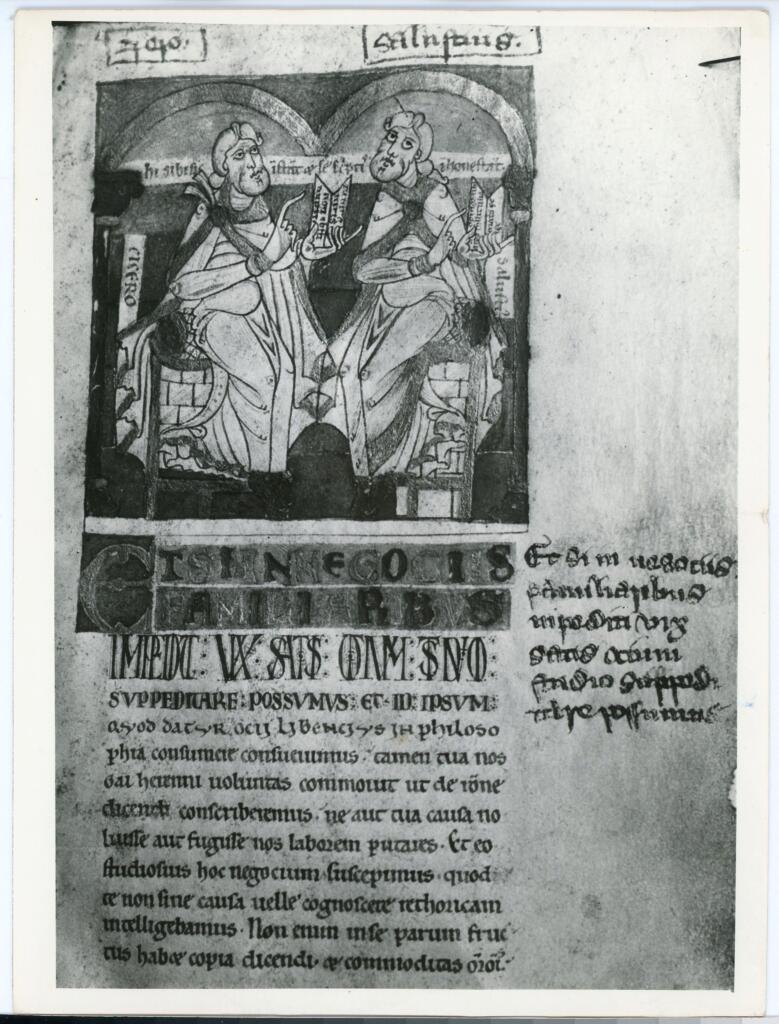 Salustius.
CICERO
ETSI IN NEGOCIIS
FAMILIARIBVS
SVPPEDITARE: POSSVMVS: ET: ID: IPSVM:
qvod datvr ocii libencivs in philoso
phia consumere consueuimus. tamen tua nos
Gai herenni uoluntas commouit ut de rone
dicendi conscriberemus. ne aut tua causa no
luisse aut fugisse nos laborem putares. Et eo
studiosius hoc negocium suscepimus. quod
te non sine causa uelle cognoscere rethoricam
intelligebamus. Non enim inse parum fruc
tus habet copia dicendi. et commoditas oroi.
Et si in negociis
familiaribus
inpediti vix
satis ocium
studio supped
itare possumus